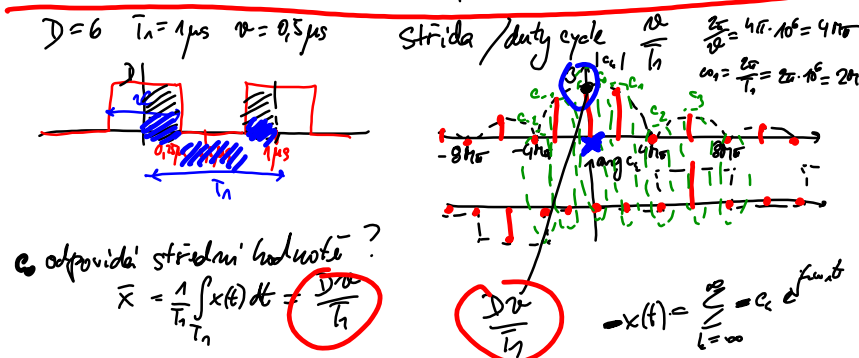 D=6 T₁=1μs ϑ=0,5μs
střída /duty cycle ϑ/T₁
2π/ϑ = 4π·10⁶ = 4Mπ
ω₁ = 2π/T₁ = 2π·10⁶ = 2M
D
ϑ
1μs
T₁
3 |cₖ|
c₁
c₂ c₃
-8Mπ -4Mπ 4Mπ 8Mπ
arg cₖ
c₀ odpovídá střední hodnotě ?
x̄ = 1/T₁ ∫T₁ x(t) dt = Dϑ/T₁
Dϑ/T₁
x(t) = ∑ k=-∞ ∞ cₖ e^jkω₁t